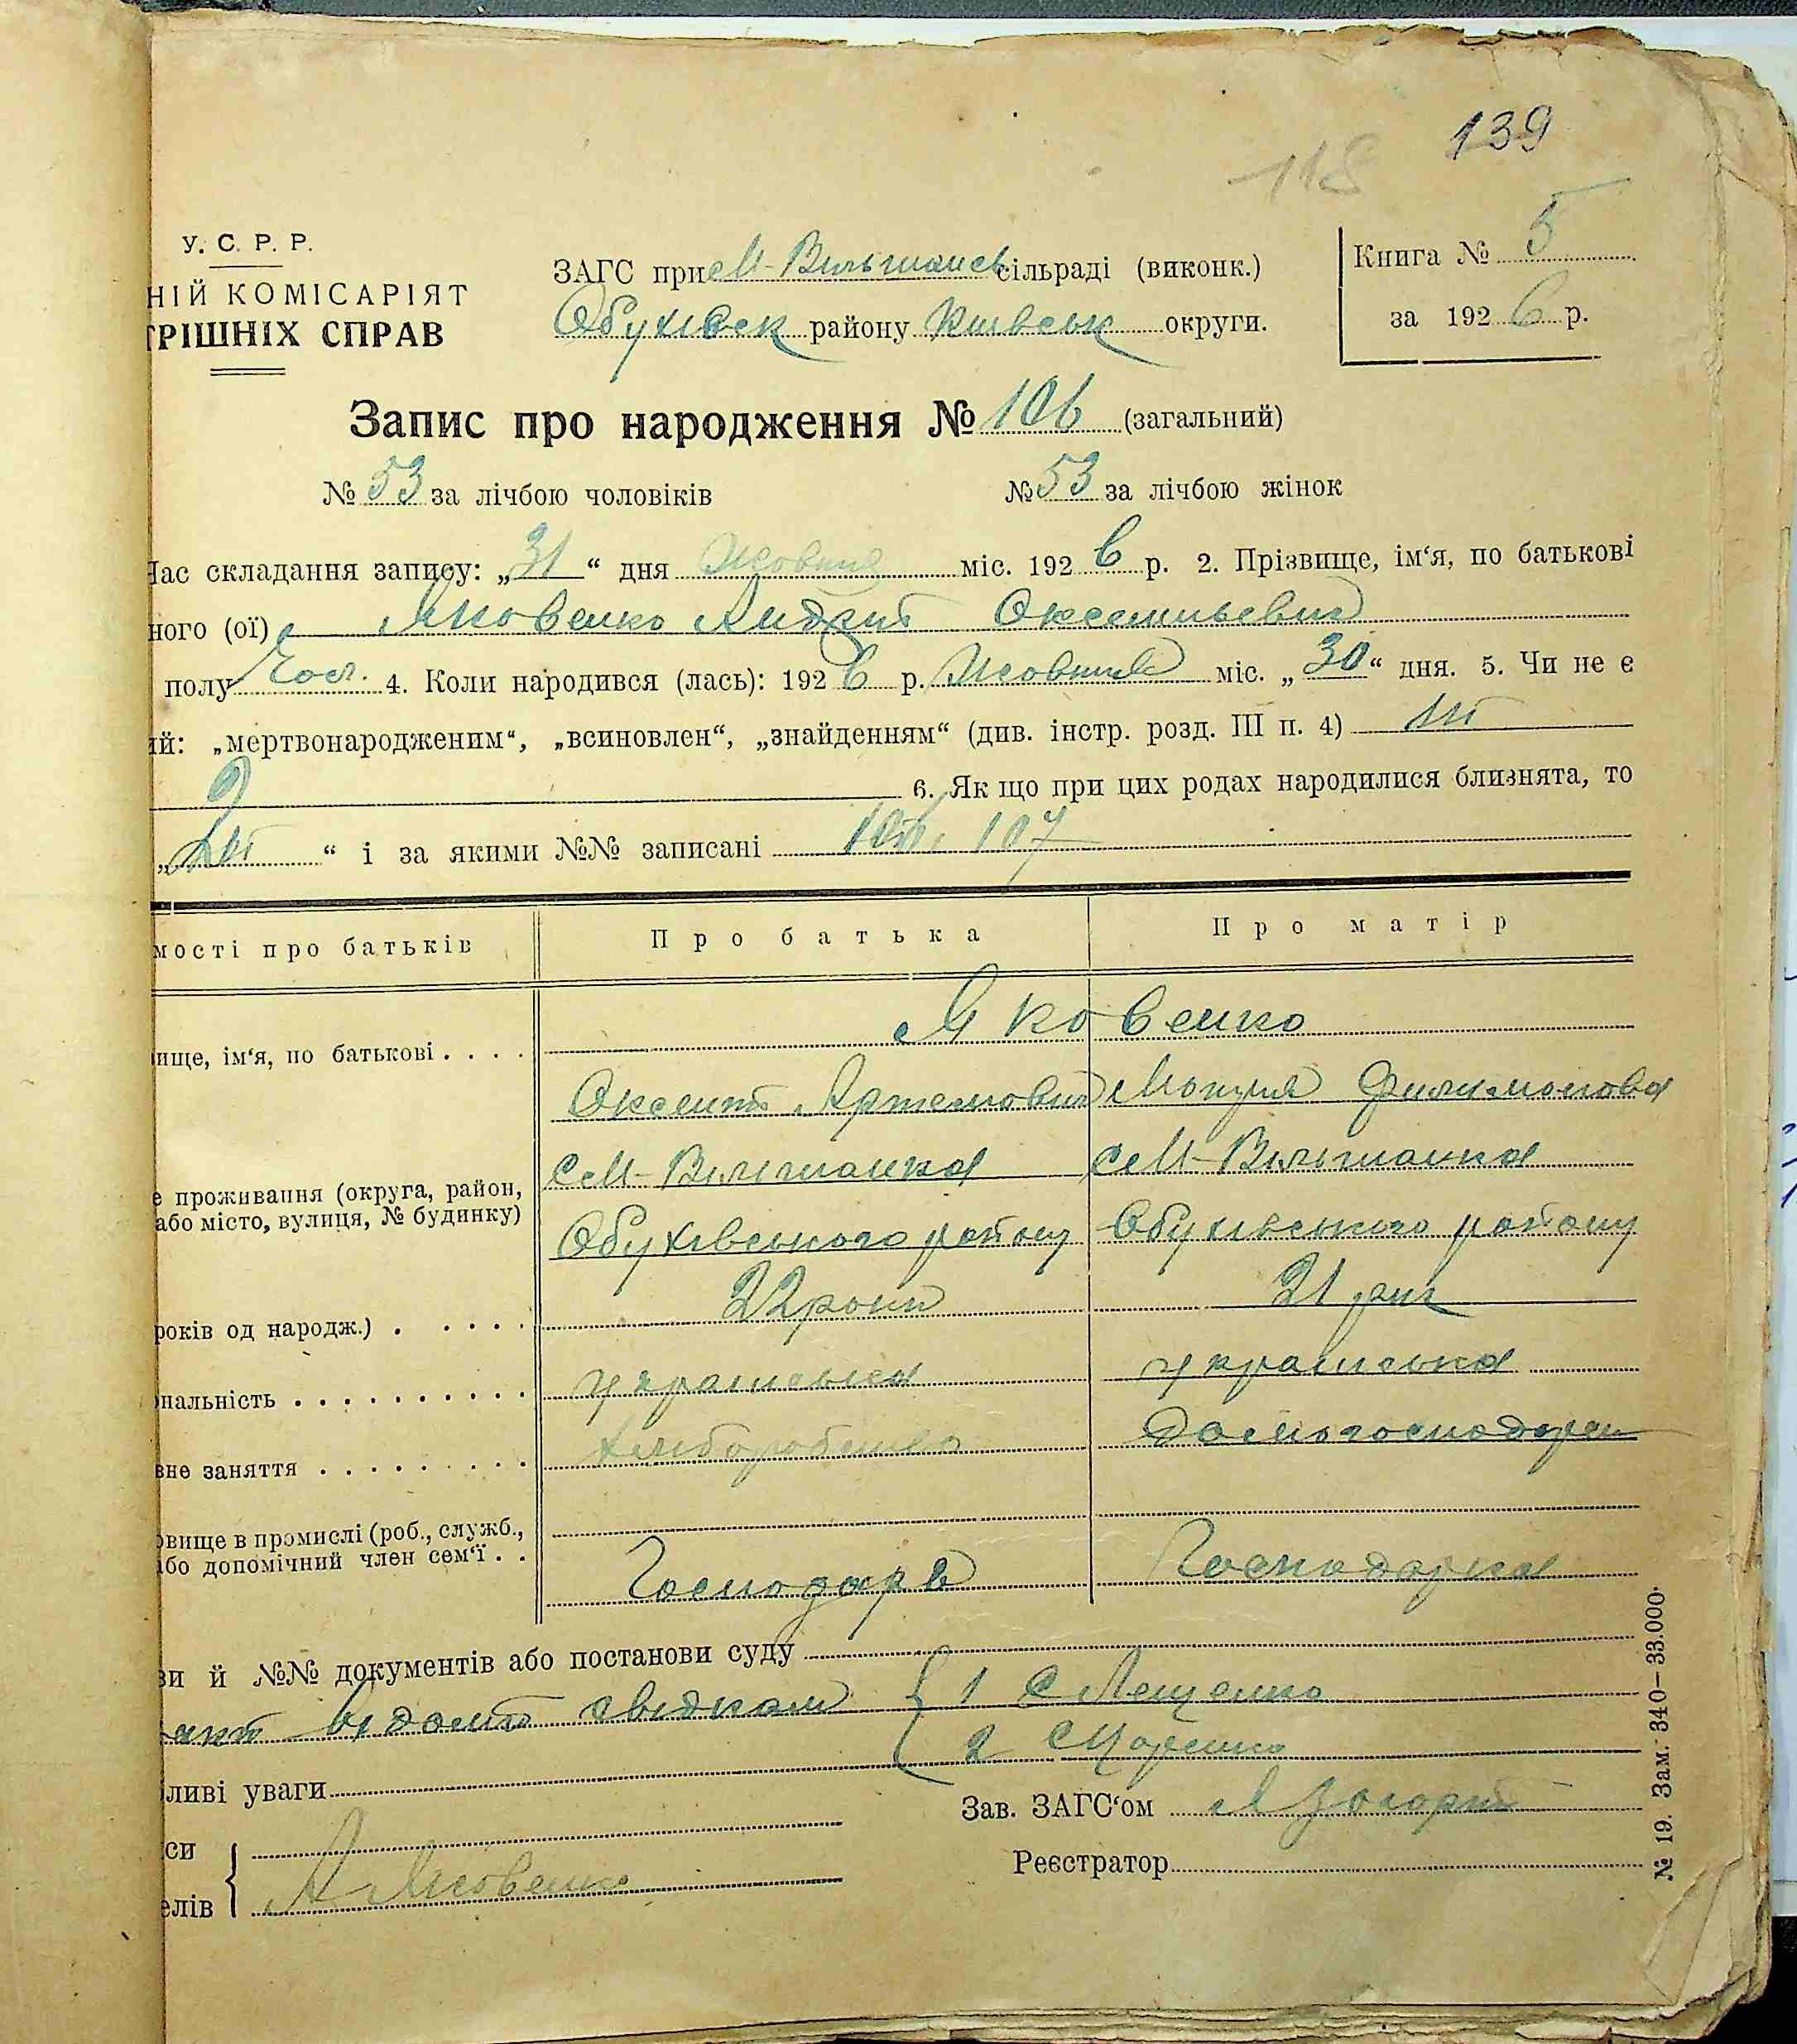 139
118
У. С. Р. Р.
НІЙ КОМІСАРІЯТ
ТРІШНІХ СПРАВ
ЗАГС при М-Вильшанськ сільраді (виконк.)
Обухівськ району Київськ округи.
Книга № 5
за 1926 р.
Запис про народження № 106 (загальний)
№ 53 за лічбою чоловіків № 53 за лічбою жінок
Час складання запису: „31“ дня Жовтня міс. 1926 р. 2. Прізвище, ім‘я, по батькові
ного (ої) Яковенко Андрій Оксентьевич
полу Чол. 4. Коли народився (лась): 1926 р. Жовтня міс. „30“ дня. 5. Чи не є
ий: „мертвонародженим“, „всиновлен“, „знайденням“ (див. інстр. розд. III п. 4) ні
6. Як що при цих родах народилися близнята, то
„ “ і за якими №№ записані 106, 107
мості про батьків Про батька Про матір
Яковенко
ище, ім‘я, по батькові . . . .
Оксент Артемович Мокрина Филимонова
с М-Вильшанка с М-Вильшанка
е проживання (округа, район,
або місто, вулиця, № будинку)
Обухівського району Обухівського району
років од народж.) . . . . . 22 роки 21 рік
ональність . . . . . . . . . . українська українська
вне заняття . . . . . . . . . хлиборобство Домогосподарка
овище в промислі (роб., служб.,
або допомічний член сем‘ї . . Господарь Господарка
ви й №№ документів або постанови суду
акт відомий свідкам { 1 С Лещенко
2 С Царенко
ливі уваги
Зав. ЗАГС‘ом
си
елів { А Яковенко
Реєстратор
№ 19. Зам. 340—33.000.